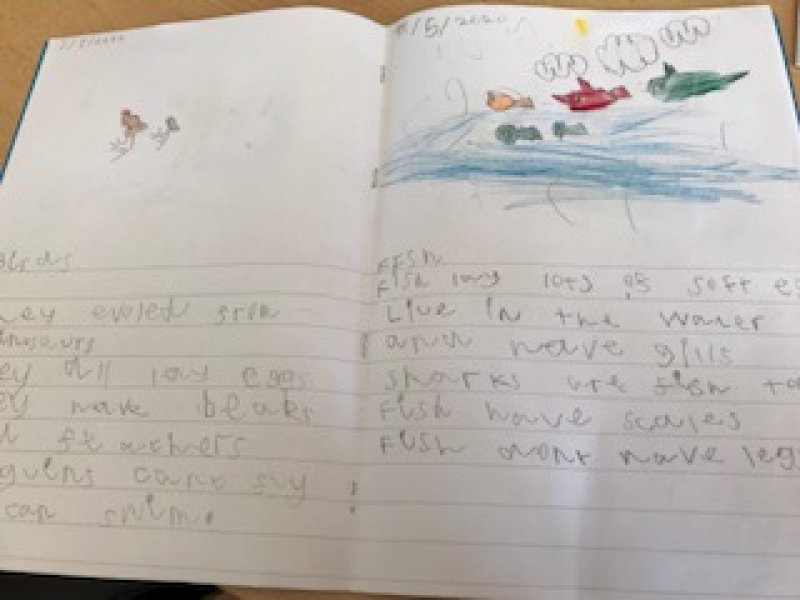 They evoled from
ey all lay eggs
ey have beaks
feathers
guins cant fly
can swim.
11/5/2020
FFSh
Fish lay lots of soft eg
Live in the water
and have gills
sharks are fish to
Fish have scales
Fish dont have legs